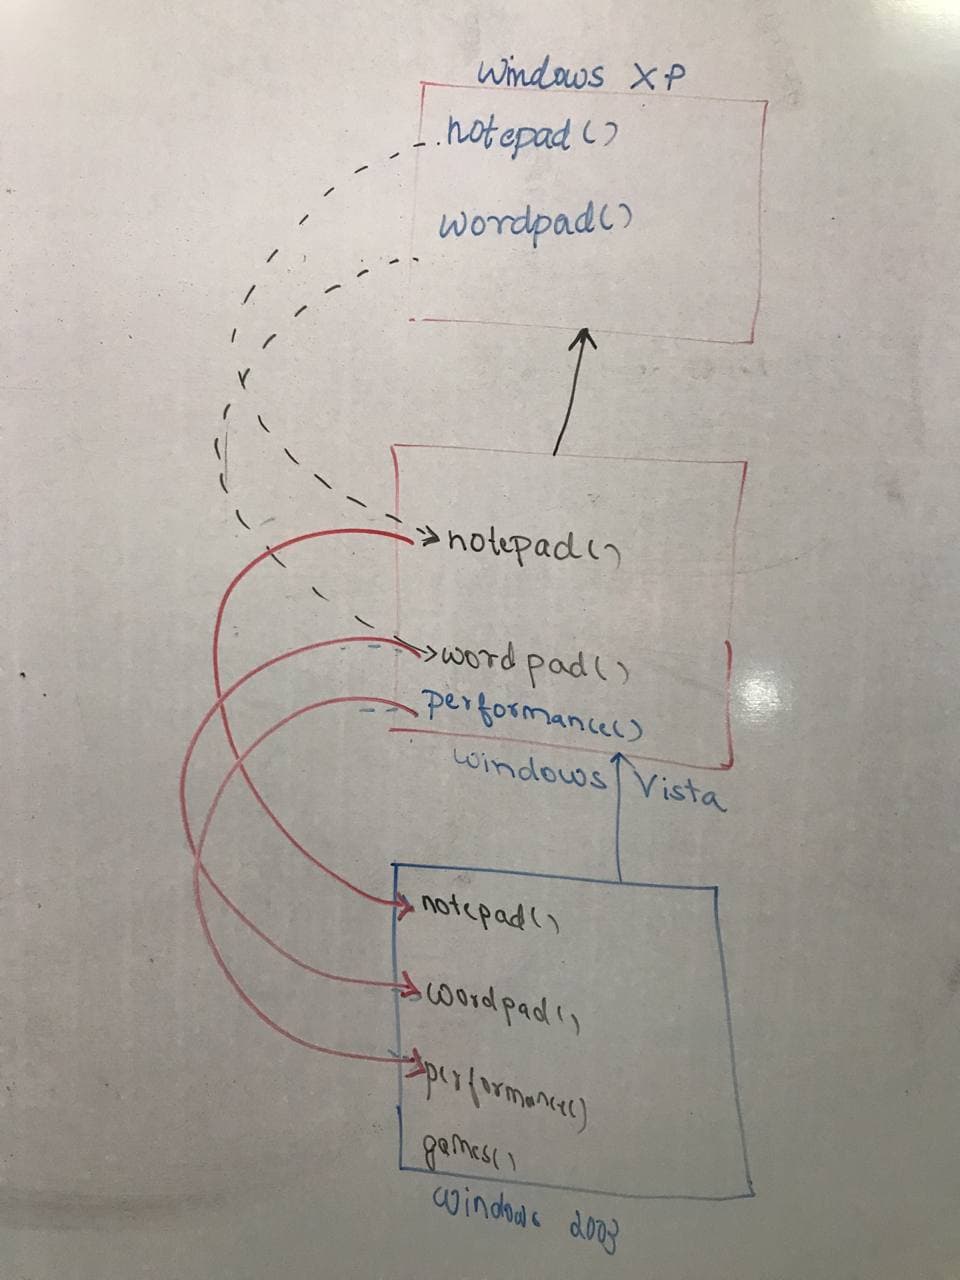 Windows XP
notepad()
wordpad()
notepad()
wordpad()
performance()
Windows Vista
notepad()
wordpad()
performance()
games()
Windows 2003